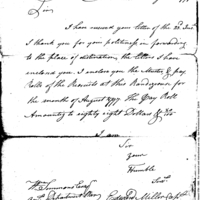 Sir
I have received your letter of the 2d Inst
I thank you for your politeness in forwarding
to the place of destination, the letters I have
enclosed you. I inclose you the Muster & pay
Rolls of the Recruits at this Rendezvous for
the months of August 1797. The Pay Roll
Amounting to eighty eight Dollars &
I am
Sir
your
Humble
Servt
Wm Simmons Esqr
Edward Miller Capt